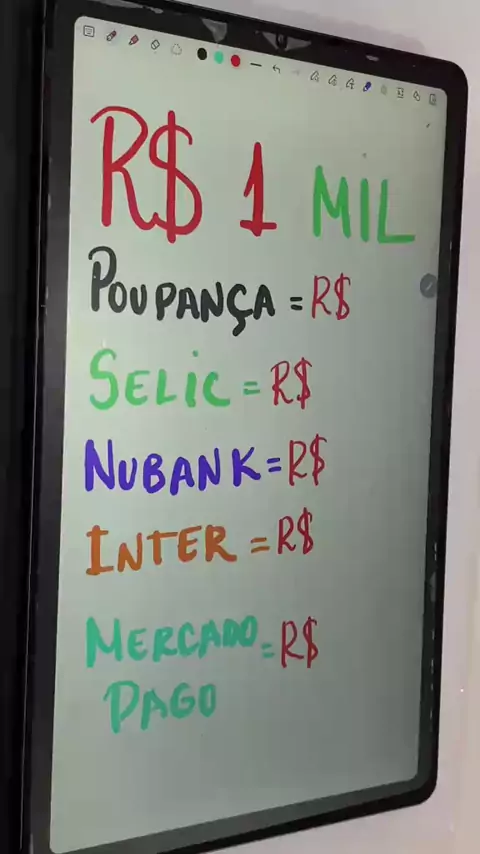 R$ 1 MIL
POUPANÇA = R$
SELIC = R$
NUBANK = R$
INTER = R$
MERCADO = R$
PAGO